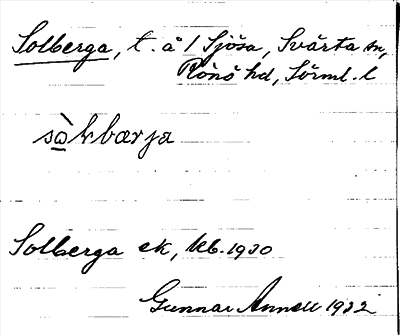 Solberga, t. å / Sjösa, Svärta sn,
Rönö hd, Sörml. l
sò̠lbærja
Solberga ek, kb. 1930
Gunnar Annell 1932